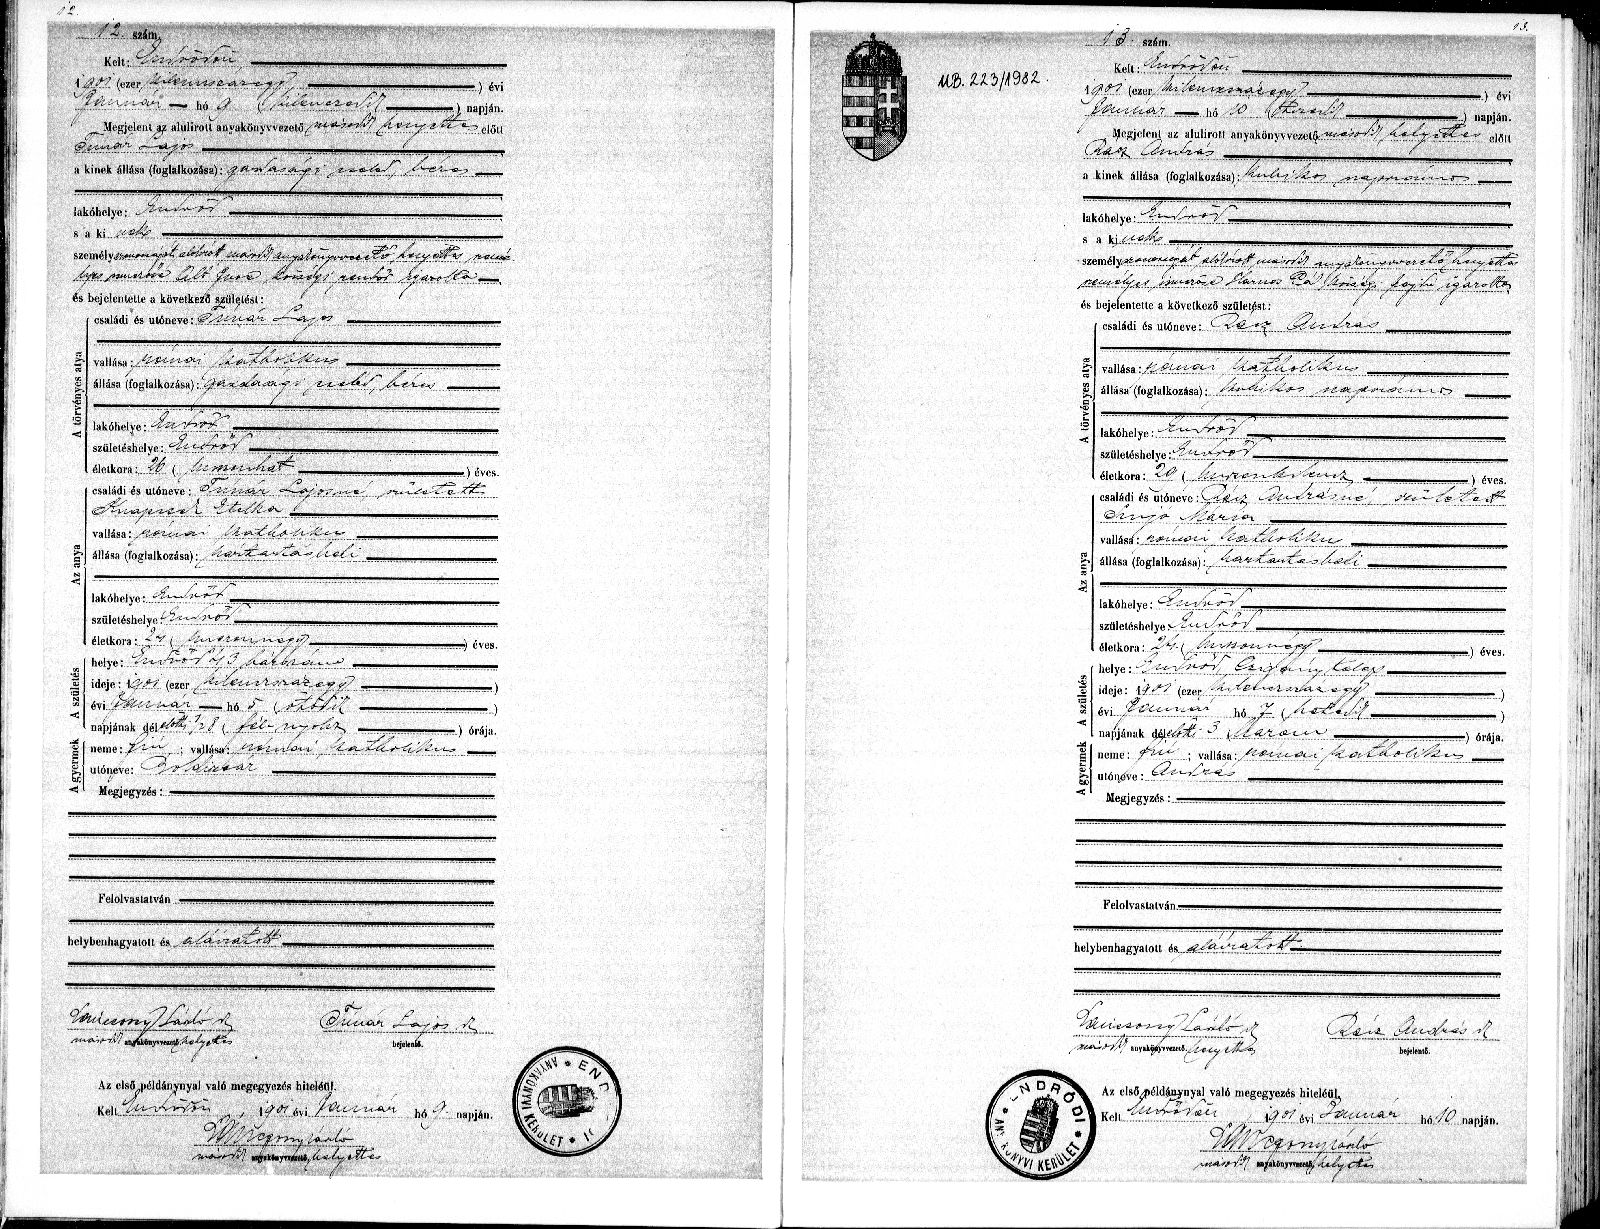 12.
12. szám.
Kelt: Endrődön
1901 (ezer kilenczszázegy) évi
Január hó 9 (kilenczedik) napján.
Megjelent az alulirott anyakönyvvezető másod helyettes előtt
Timár Lajos
a kinek állása (foglalkozása): gazdasági cseléd, béres
lakóhelye: Endrőd
s a ki nek
személy
és bejelentette a következő születést:
A törvényes atya
családi és utóneve: Timár Lajos
vallása: római katholikus
állása (foglalkozása): gazdasági cseléd, béres
lakóhelye: Endrőd
születéshelye: Endrőd
életkora: 26 (huszonhat) éves.
Az anya
családi és utóneve: Timár Lajosné, született
Knapcsek Etelka
vallása: római katholikus
állása (foglalkozása): háztartásbeli
lakóhelye: Endrőd
születéshelye: Endrőd
életkora: 24 (huszonnégy) éves.
A születés
helye: Endrőd
ideje: 1901 (ezer kilenczszázegy)
évi Január hó 5 (ötödik)
napjának délelőtt 1/2 8 (fél nyolcz) órája.
A gyermek
neme: fiú; vallása: római katholikus
utóneve: Boldizsár
Megjegyzés:
Felolvastatván
helybenhagyatott és aláiratott
László
másod anyakönyvvezető helyettes
Timár Lajos
bejelentő.
Az első példánynyal való megegyezés hiteléül.
Kelt Endrődön, 1901 évi Január hó 9. napján.
másod anyakönyvvezető helyettes
13.
MB. 223/1982.
13 szám.
Kelt: Endrődön
1901 (ezer kilenczszázegy) évi
Január hó 10 (tizedik) napján.
Megjelent az alulirott anyakönyvvezető másod helyettes előtt
Rácz András
a kinek állása (foglalkozása): kubikos napszámos
lakóhelye: Endrőd
s a ki nek
személy
és bejelentette a következő születést:
A törvényes atya
családi és utóneve: Rácz András
vallása: római katholikus
állása (foglalkozása): kubikos napszámos
lakóhelye: Endrőd
születéshelye: Endrőd
életkora: 29 (huszonkilencz) éves.
Az anya
családi és utóneve: Rácz Andrásné, született
Mária
vallása: római katholikus
állása (foglalkozása): háztartásbeli
lakóhelye: Endrőd
születéshelye: Endrőd
életkora: 24. (huszonnégy) éves.
A születés
helye: Endrőd, Czigány telep
ideje: 1901 (ezer kilenczszázegy)
évi Január hó 7 (hetedik)
napjának délelőtti 3 (három) órája.
A gyermek
neme: fiú; vallása: római katholikus
utóneve: András
Megjegyzés:
Felolvastatván
helybenhagyatott és aláiratott
László
másod anyakönyvvezető helyettes
Rácz András
bejelentő.
Az első példánynyal való megegyezés hiteléül.
Kelt Endrődön, 1901 évi Január hó 10 napján.
másod anyakönyvvezető helyettes
ENDRŐDI ANYAKÖNYVI KERÜLET